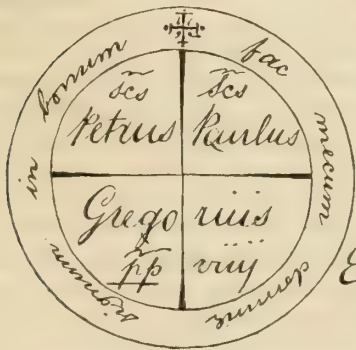 fac mecum domine signum in bonum
scs scs
Petrus Paulus
Grego rius
pp viij